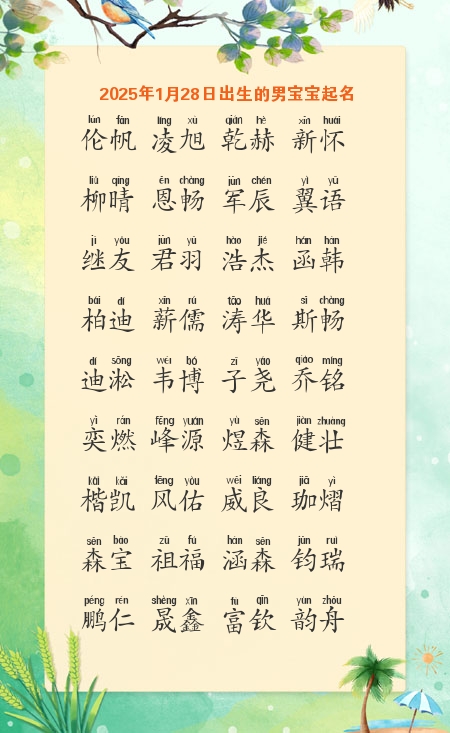 2025年1月28日出生的男宝宝起名
lún fān líng xù qián hè xīn huái
伦帆 凌旭 乾赫 新怀
liǔ qíng ēn chàng jūn chén yì yǔ
柳晴 恩畅 军辰 翼语
jì yǒu jūn yǔ hào jié hán hán
继友 君羽 浩杰 函韩
bǎi dí xīn rú tāo huá sī chàng
柏迪 薪儒 涛华 斯畅
dí sōng wéi bó zǐ yáo qiáo míng
迪淞 韦博 子尧 乔铭
yì rán fēng yuán yù sēn jiàn zhuàng
奕燃 峰源 煜森 健壮
kǎi kǎi fēng yòu wēi liáng jiā yì
楷凯 风佑 威良 珈熠
sēn bǎo zǔ fú hán sēn jūn ruì
森宝 祖福 涵森 钧瑞
péng rén shèng xīn fù qīn yùn zhōu
鹏仁 晟鑫 富钦 韵舟